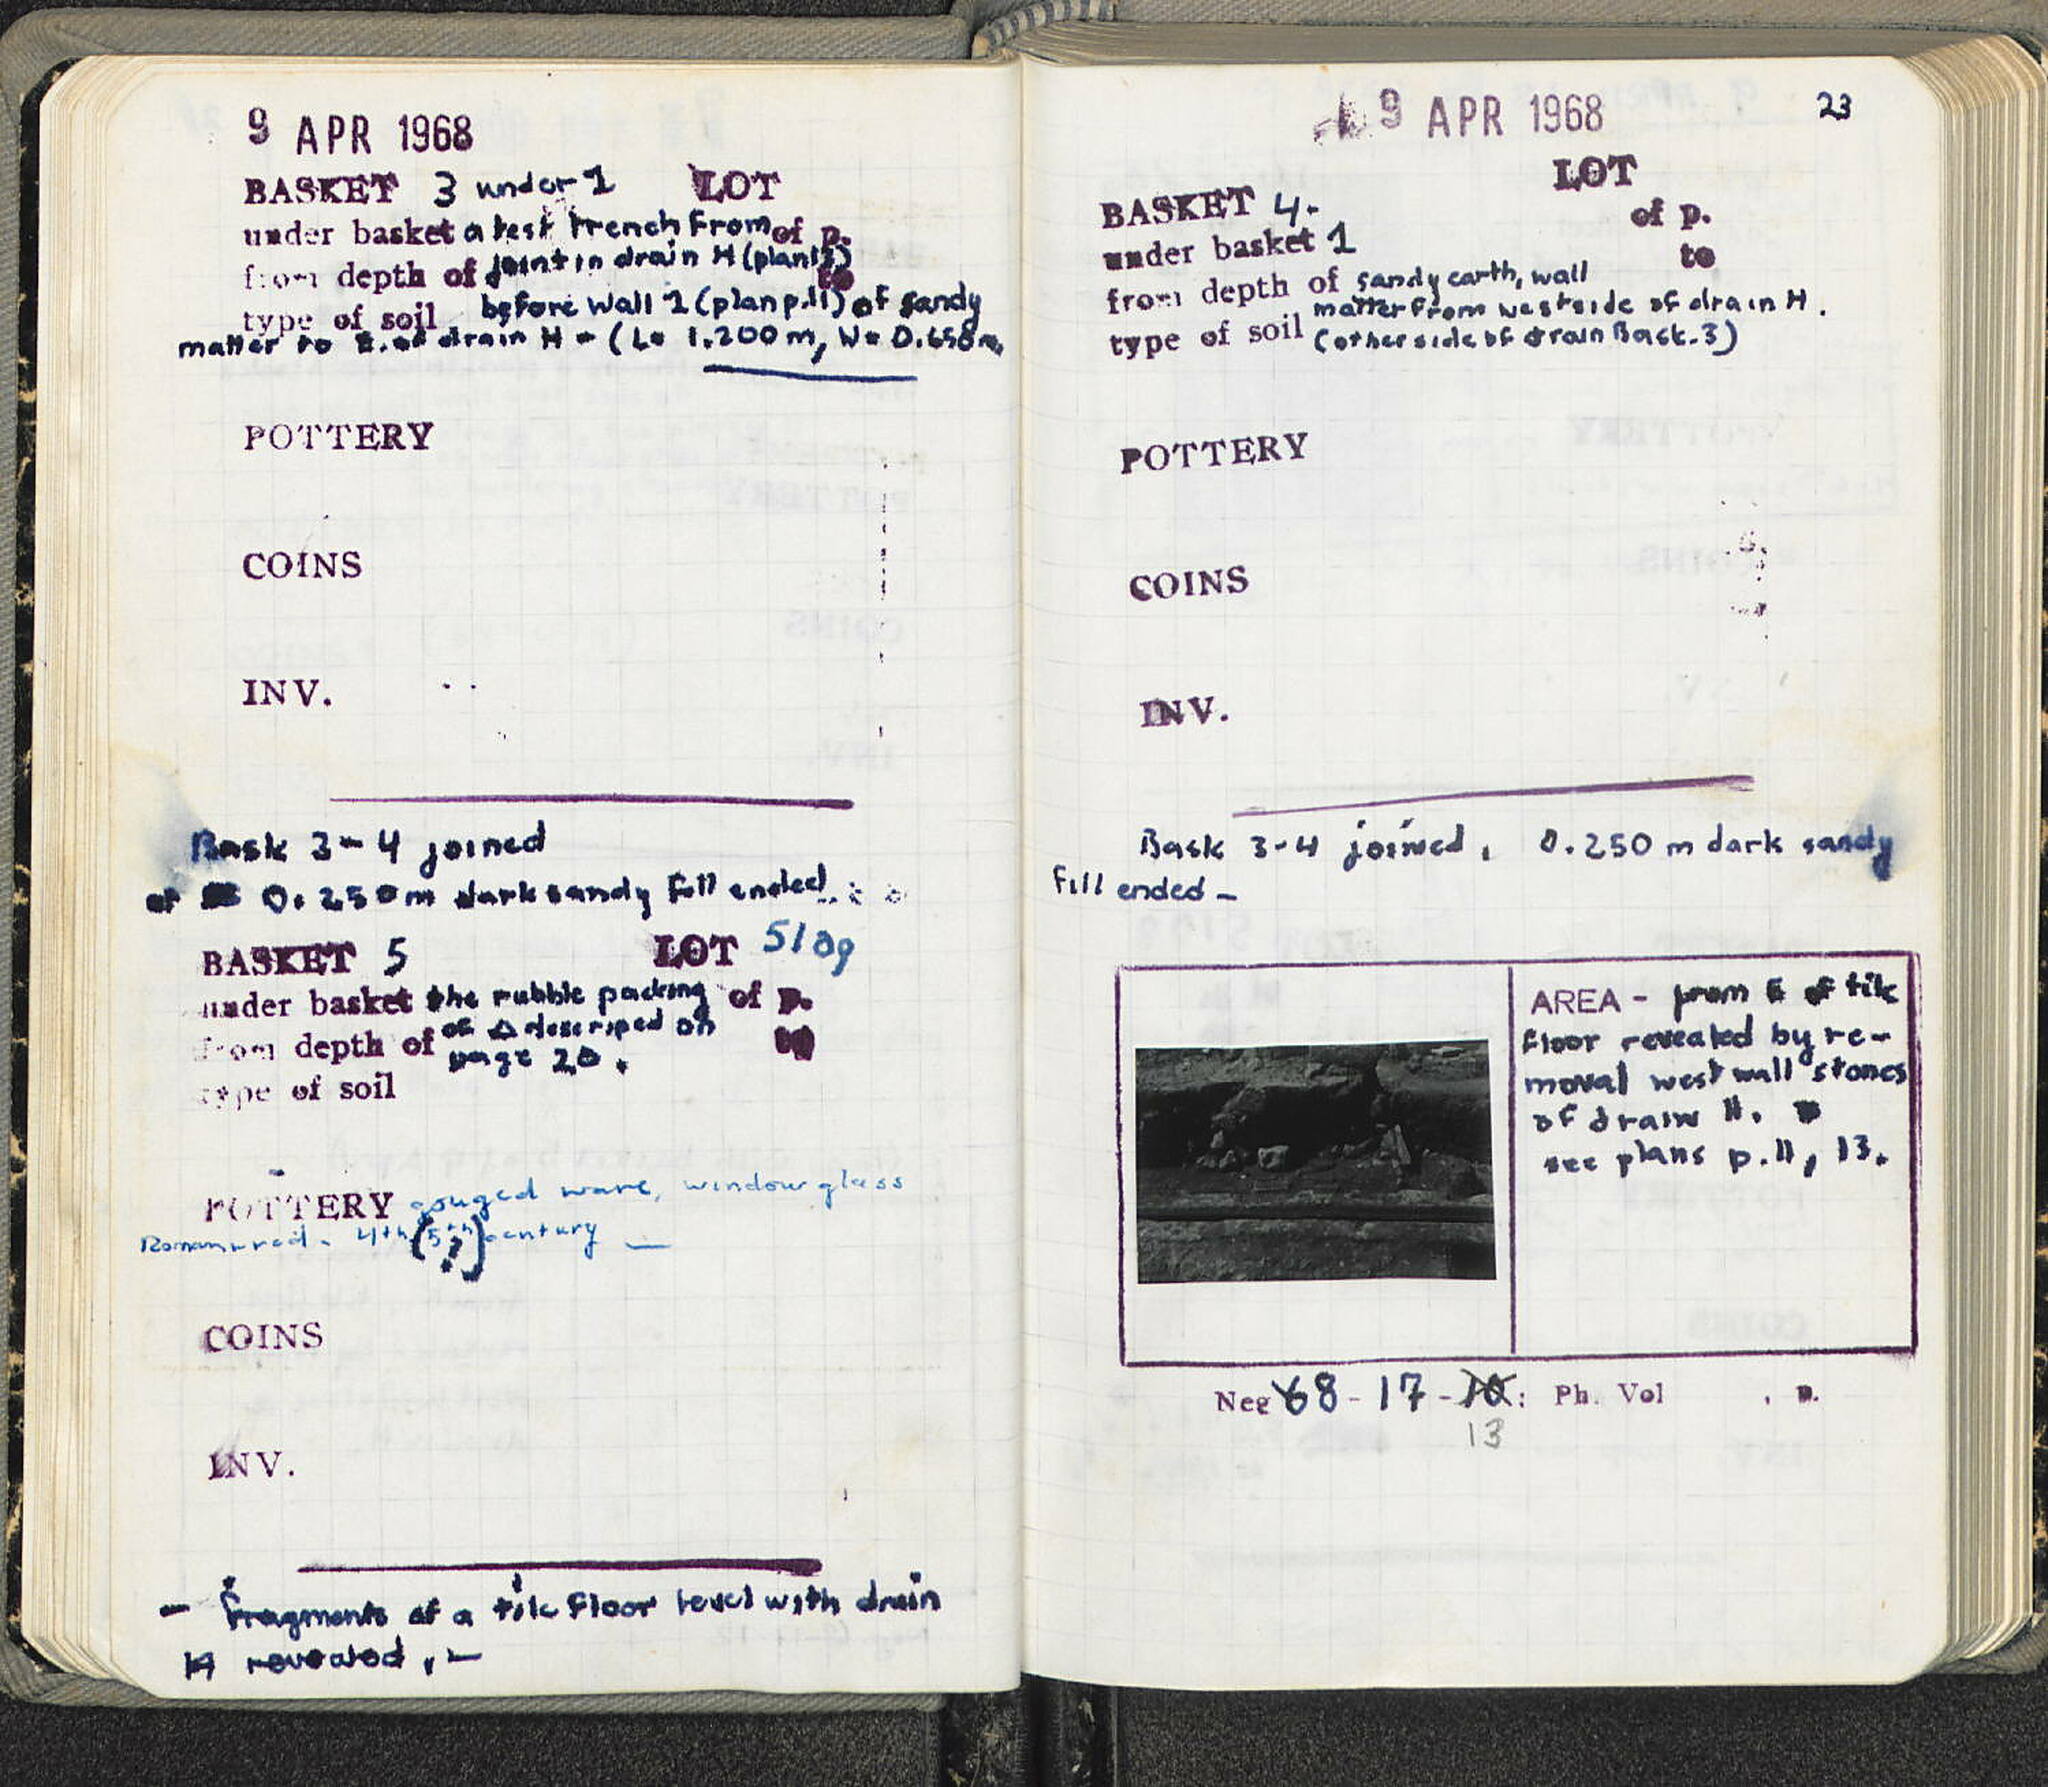 9 APR 1968
BASKET 3 under 1 LOT
under basket a test trench From of p.
from depth of joint in drain H (plan 13) to
type of soil before wall 1 (plan p.11) of sandy
matter to E. of drain H - (L= 1.200 m, W= 0.650 m,
POTTERY
COINS
INV.
Bask 3-4 joined
at 0.250 m dark sandy fill ended
BASKET 5 LOT 5109
under basket the rubble packing of p.
from depth of of Δ descriped on to
type of soil page 20.
POTTERY gouged ware, window glass
Roman red. 4th (5th?) century —
COINS
INV.
- Fragments of a tile floor level with drain
H revealed, -
9 APR 1968 23
LOT
BASKET 4.
of p.
under basket 1
to
from depth of sandy earth, wall
matter from west side of drain H.
type of soil (other side of drain Bask. 3)
POTTERY
COINS
INV.
Bask 3-4 joined, 0.250 m dark sandy
fill ended -
AREA - from E of tile
floor revealed by re-
moval west wall stones
of drain H.
see plans p.11, 13.
Neg 68 - 17 - 10: Ph. Vol , p.
13